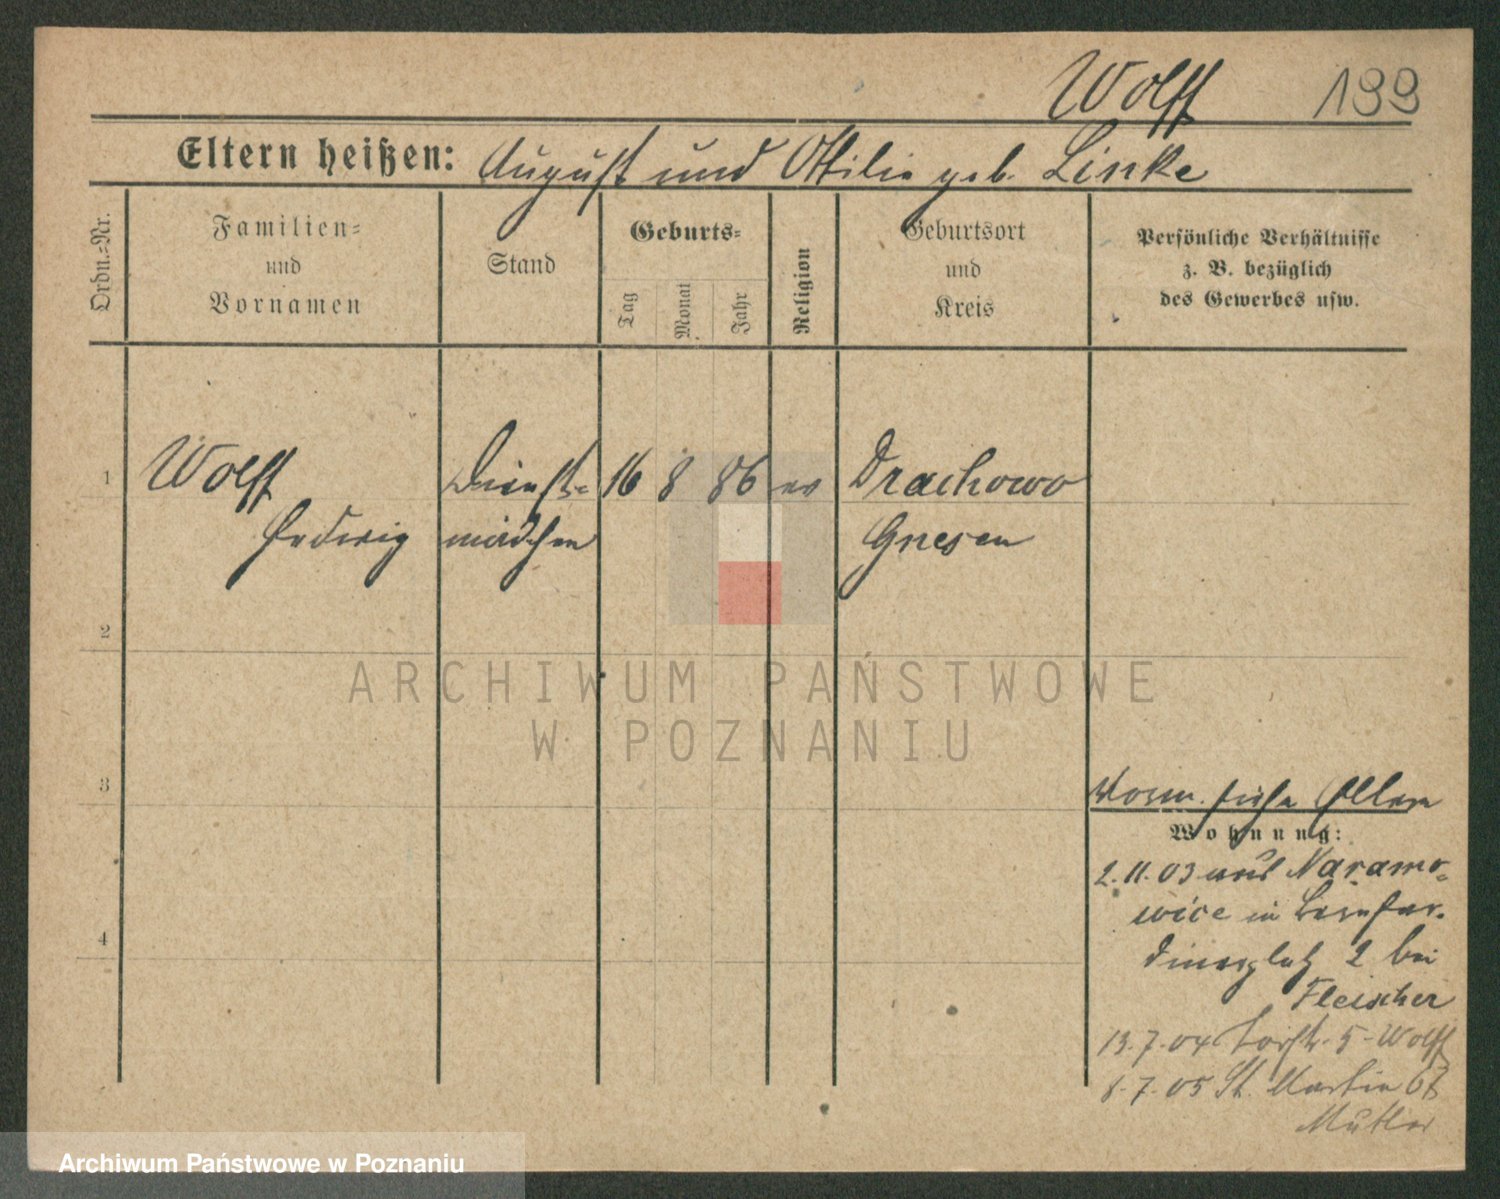 Wolff 199
Eltern heißen: August und Ottilie geb. Linke
Ordn.-Nr.
Familien-
und
Vornamen
Stand
Geburts-
Tag
Monat
Jahr
Religion
Geburtsort
und
Kreis
Persönliche Verhältnisse
z. B. bezüglich
des Gewerbes usw.
1 Wolff Dienst- 16 8 86 ev Drachowo
Hedwig mädchen Gnesen
2
3
4
Vorm. siehe Eltern
Wohnung:
2.11.03 aus Naramo-
wice in Bernhar-
dinerplatz 2 bei
Fleischer
13.7.04 Torstr. 5 - Wolff
8.7.05 St. Martin 67
Mutter
ARCHIWUM PAŃSTWOWE
W POZNANIU
Archiwum Państwowe w Poznaniu